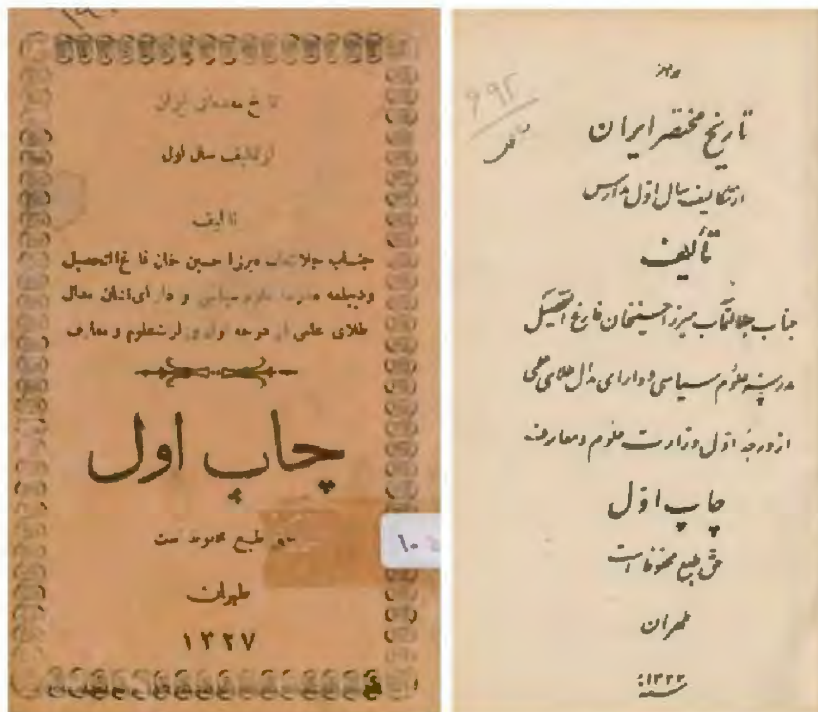 تاریخ مقدماتی ایران
از تکالیف سال اول
تالیف
جناب جلالتمآب میرزا حسین خان فارغ التحصیل
ودیپلمه مدرسه علوم سیاسی و دارای نشان مدال
طلای علمی از درجه اول وزارت علوم و معارف
چاپ اول
حق طبع محفوظ است
طهران
۱۳۲۷
۱۰
۶۹۲
تاریخ مختصر ایران
از تکالیف سال اول مدارس
تألیف
جناب جلالتمآب میرزا حسینخان فارغ التحصیل
مدرسه علوم سیاسی و دارای مدال طلای علمی
از درجه اول وزارت علوم و معارف
چاپ اول
حق طبع محفوظ است
طهران
سنه ۱۳۲۲